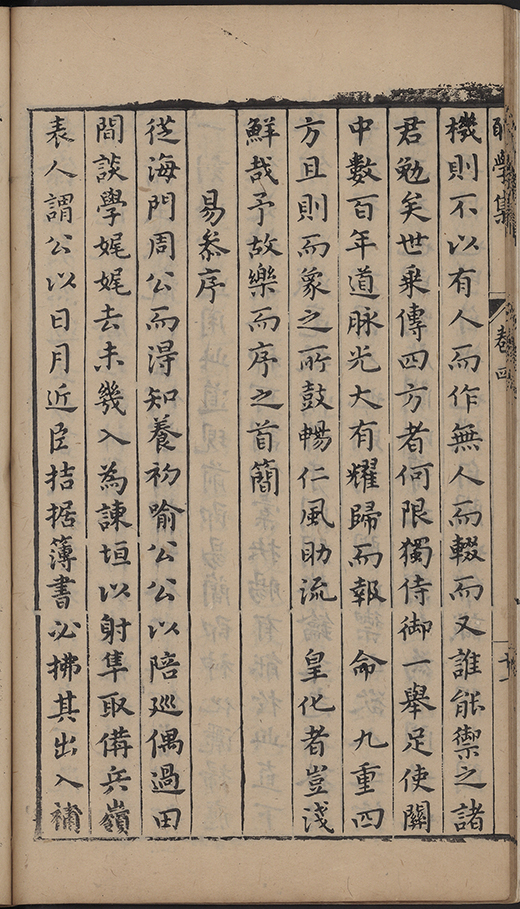 學集
卷四
十
機則不以有人而作無人而輟而又誰能禦之諸
君勉矣世乗傳四方者何限獨侍御一舉足使關
中數百年道脉光大有耀歸而報　命　九重四
方且則而象之所鼓暢仁風助流　皇化者豈淺
鮮哉予故樂而序之首簡
易叅序
從海門周公而淂知養初喻公公以陪廵偶過田
間談學娓娓去未幾入為諫垣以射隼取俻兵嶺
表人謂公以日月近臣拮据簿書必拂其出入補